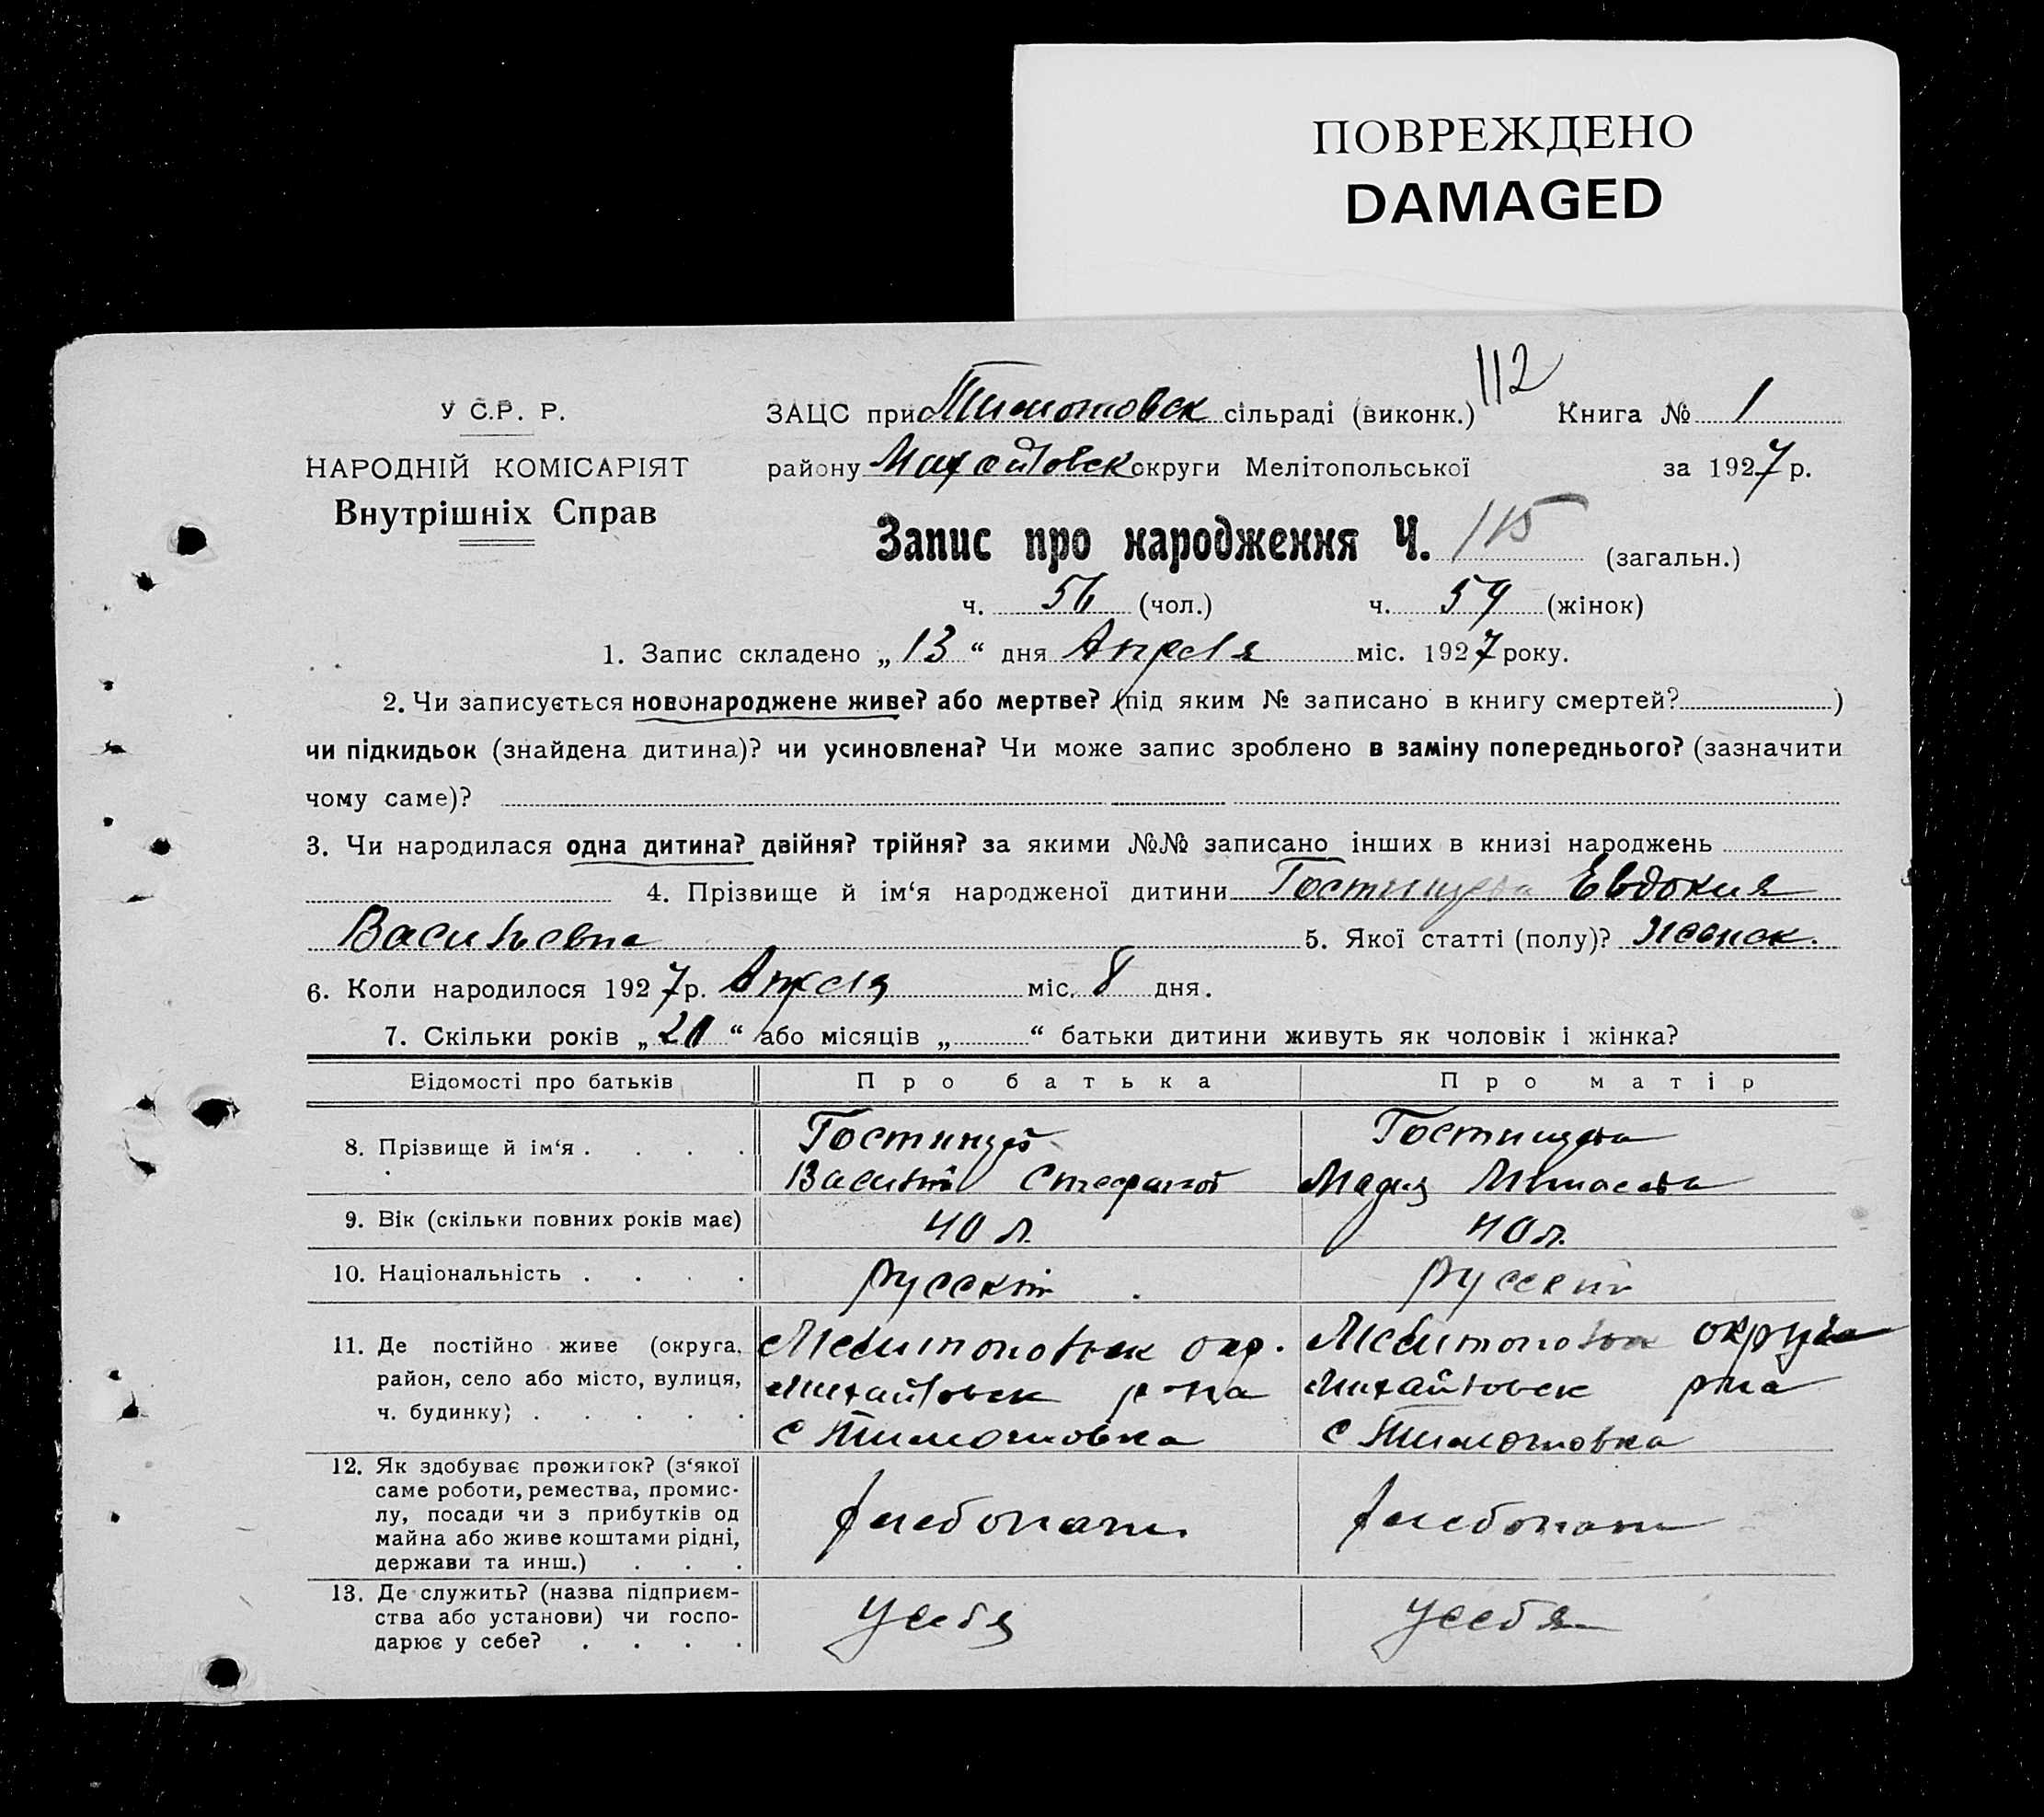 ПОВРЕЖДЕНО
DAMAGED
112
У С.Р. Р.
ЗАЦС при Тимошовск сільраді (виконк.) Книга № 1
НАРОДНІЙ КОМІСАРІЯТ
району Михайловск округи Мелітопольської за 1927 р.
Внутрішніх Справ
Запис про народження Ч. 115 (загальн.)
ч. 56 (чол.) ч. 59 (жінок)
1. Запис складено „13“ дня Апреля міс. 1927 року.
2. Чи записується новонароджене живе? або мертве? (під яким № записано в книгу смертей? )
чи підкидьок (знайдена дитина)? чи усиновлена? Чи може запис зроблено в заміну попереднього? (зазначити
чому саме)?
3. Чи народилася одна дитина? двійня? трійня? за якими №№ записано інших в книзі народжень
4. Прізвище й ім‘я народженої дитини Гостищева Евдокия
Васильевна 5. Якої статті (полу)? женск.
6. Коли народилося 1927 р. Апреля міс. 8 дня.
7. Скільки років „20“ або місяців „ “ батьки дитини живуть як чоловік і жінка?
Відомості про батьків Про батька Про матір
8. Прізвище й ім‘я . . . . Гостищев Гостищева
Василий Мария
9. Вік (скільки повних років має) 40 л. 40 л.
10. Національність . . . . Русский Русский
11. Де постійно живе (округа, Мелитопольск окр. Мелитопольск округа
район, село або місто, вулиця, Михайловск р-на Михайловск р-на
ч. будинку) . . . . . с Тимошовка с Тимошовка
12. Як здобуває прожиток? (з‘якої
саме роботи, ремества, промис-
лу, посади чи з прибутків од хлебопаш. хлебопаш
майна або живе коштами рідні,
держави та инш.) . . .
13. Де служить? (назва підприєм-
ства або установи) чи госпо- У себя У себя
дарює у себе? . . . .